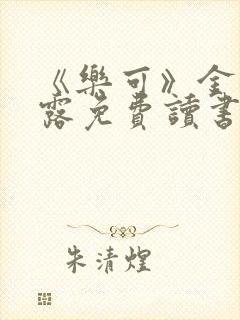 《樂可》金
露免費讀書
朱清煌